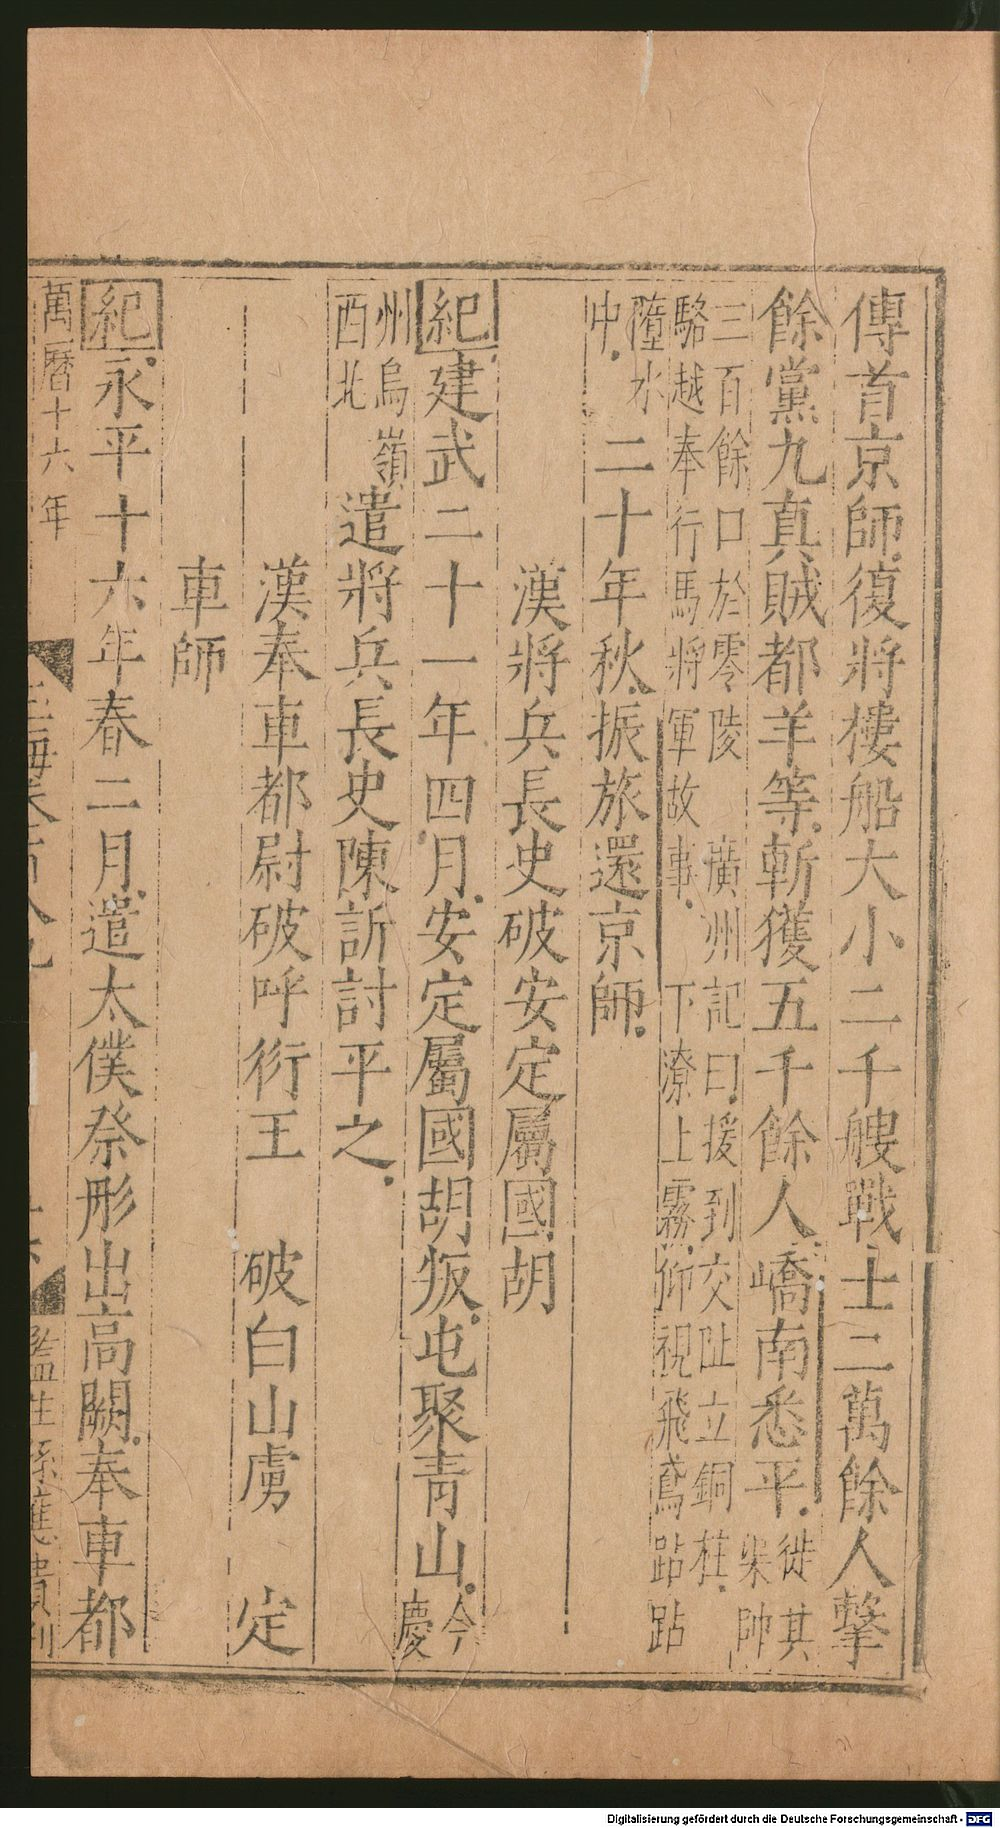 傳首京師復將樓船大小二千艘戰士二萬餘人擊
餘黨九真賊都羊等斬獲五千餘人嶠南悉平徙其渠帥
三百餘口於零陵 廣州記曰援到交阯立銅柱
駱越奉行馬將軍故事 下潦上霧仰視飛鳶跕跕
墮水中 二十年秋振旅還京師
漢將兵長史破安定屬國胡
紀建武二十一年四月安定屬國胡叛屯聚青山今慶
州烏嶺酉北遣將兵長史陳訢討平之
漢奉車都尉破呼衍王 破白山虜 定
車師
紀永平十六年春二月遣太僕祭肜出高闕奉車都
萬曆十六年
監生孫應
Digitalisierung gefördert durch die Deutsche Forschungsgemeinschaft - DFG